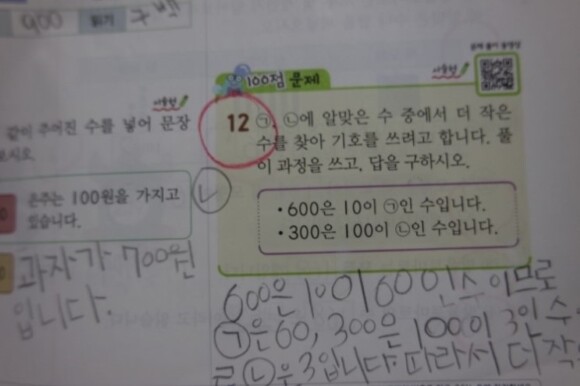 900 읽기 구백
서술형
같이 주어진 수를 넣어 문장
보시오.
은주는 100원을 가지고
있습니다.
과자가 700원
입니다.
100점 문제
서술형
12 ㉠, ㉡에 알맞은 수 중에서 더 작은
수를 찾아 기호를 쓰려고 합니다. 풀
이 과정을 쓰고, 답을 구하시오.
㉡
• 600은 10이 ㉠인 수입니다.
• 300은 100이 ㉡인 수입니다.
600은 10이 60인 수 이므로
㉠은 60, 300은 100이 3인 수
로 ㉡은 3입니다. 따라서 더 작